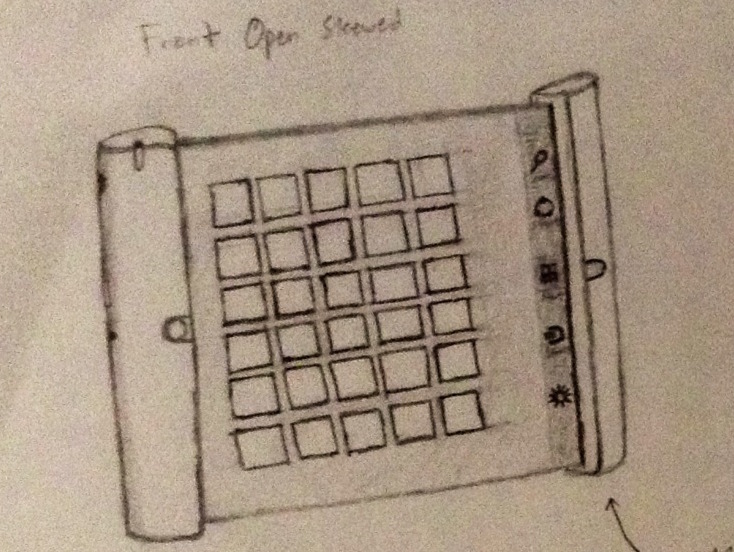 Front Open Skewed